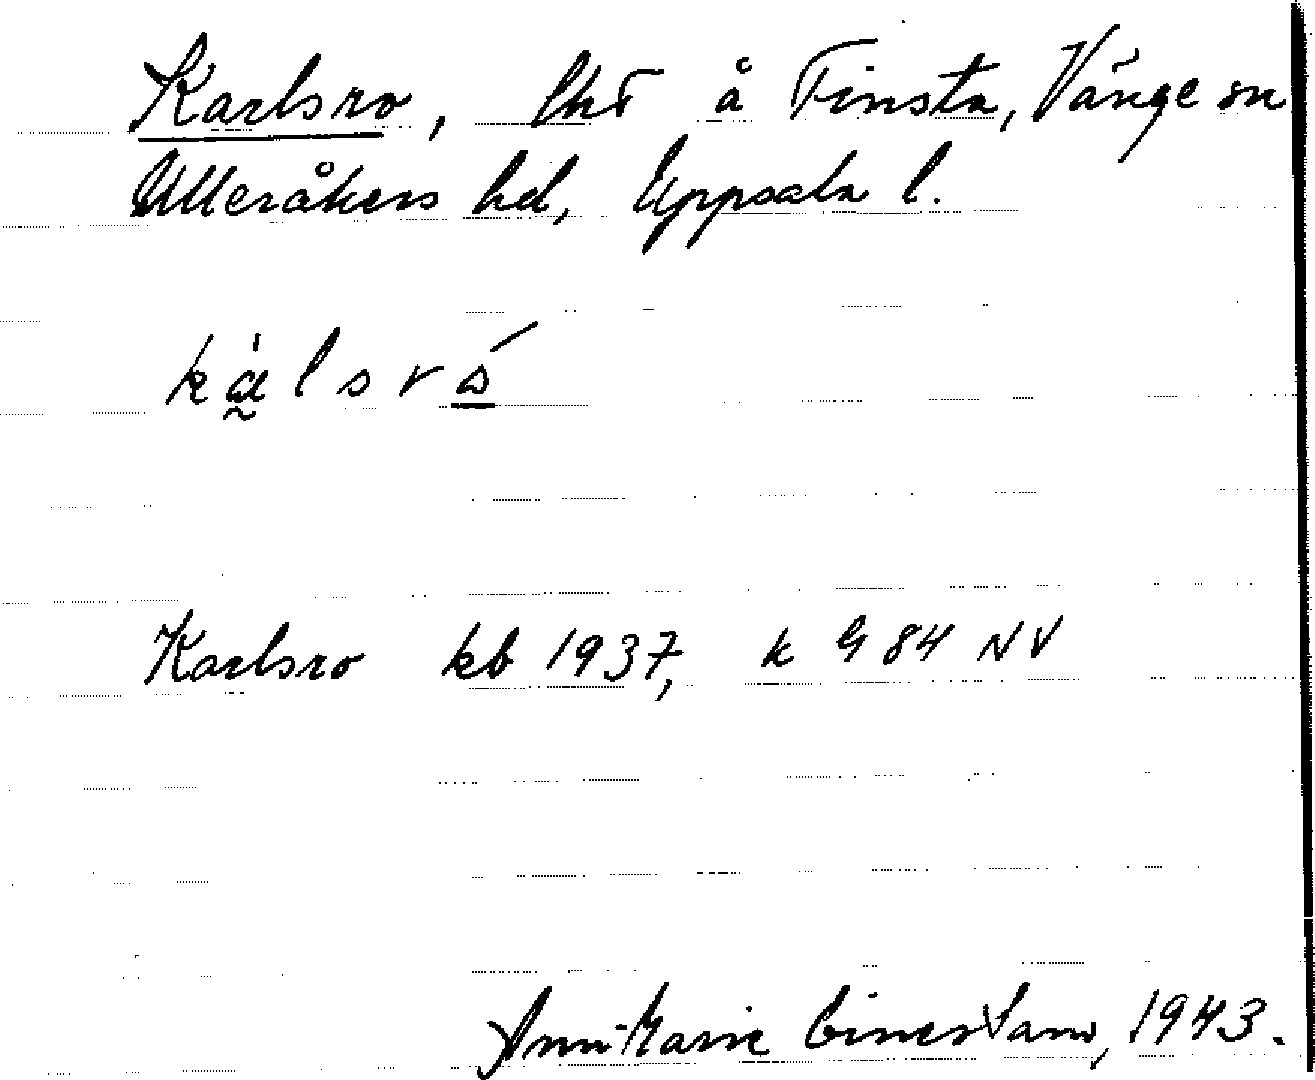 Karlsro, lht å Finsta, Vänge sn
Ulleråkers hd, Uppsala l.
kɑ̀lsró
Karlsro kb 1937, k G 84 NV
Ann-Marie 1943.